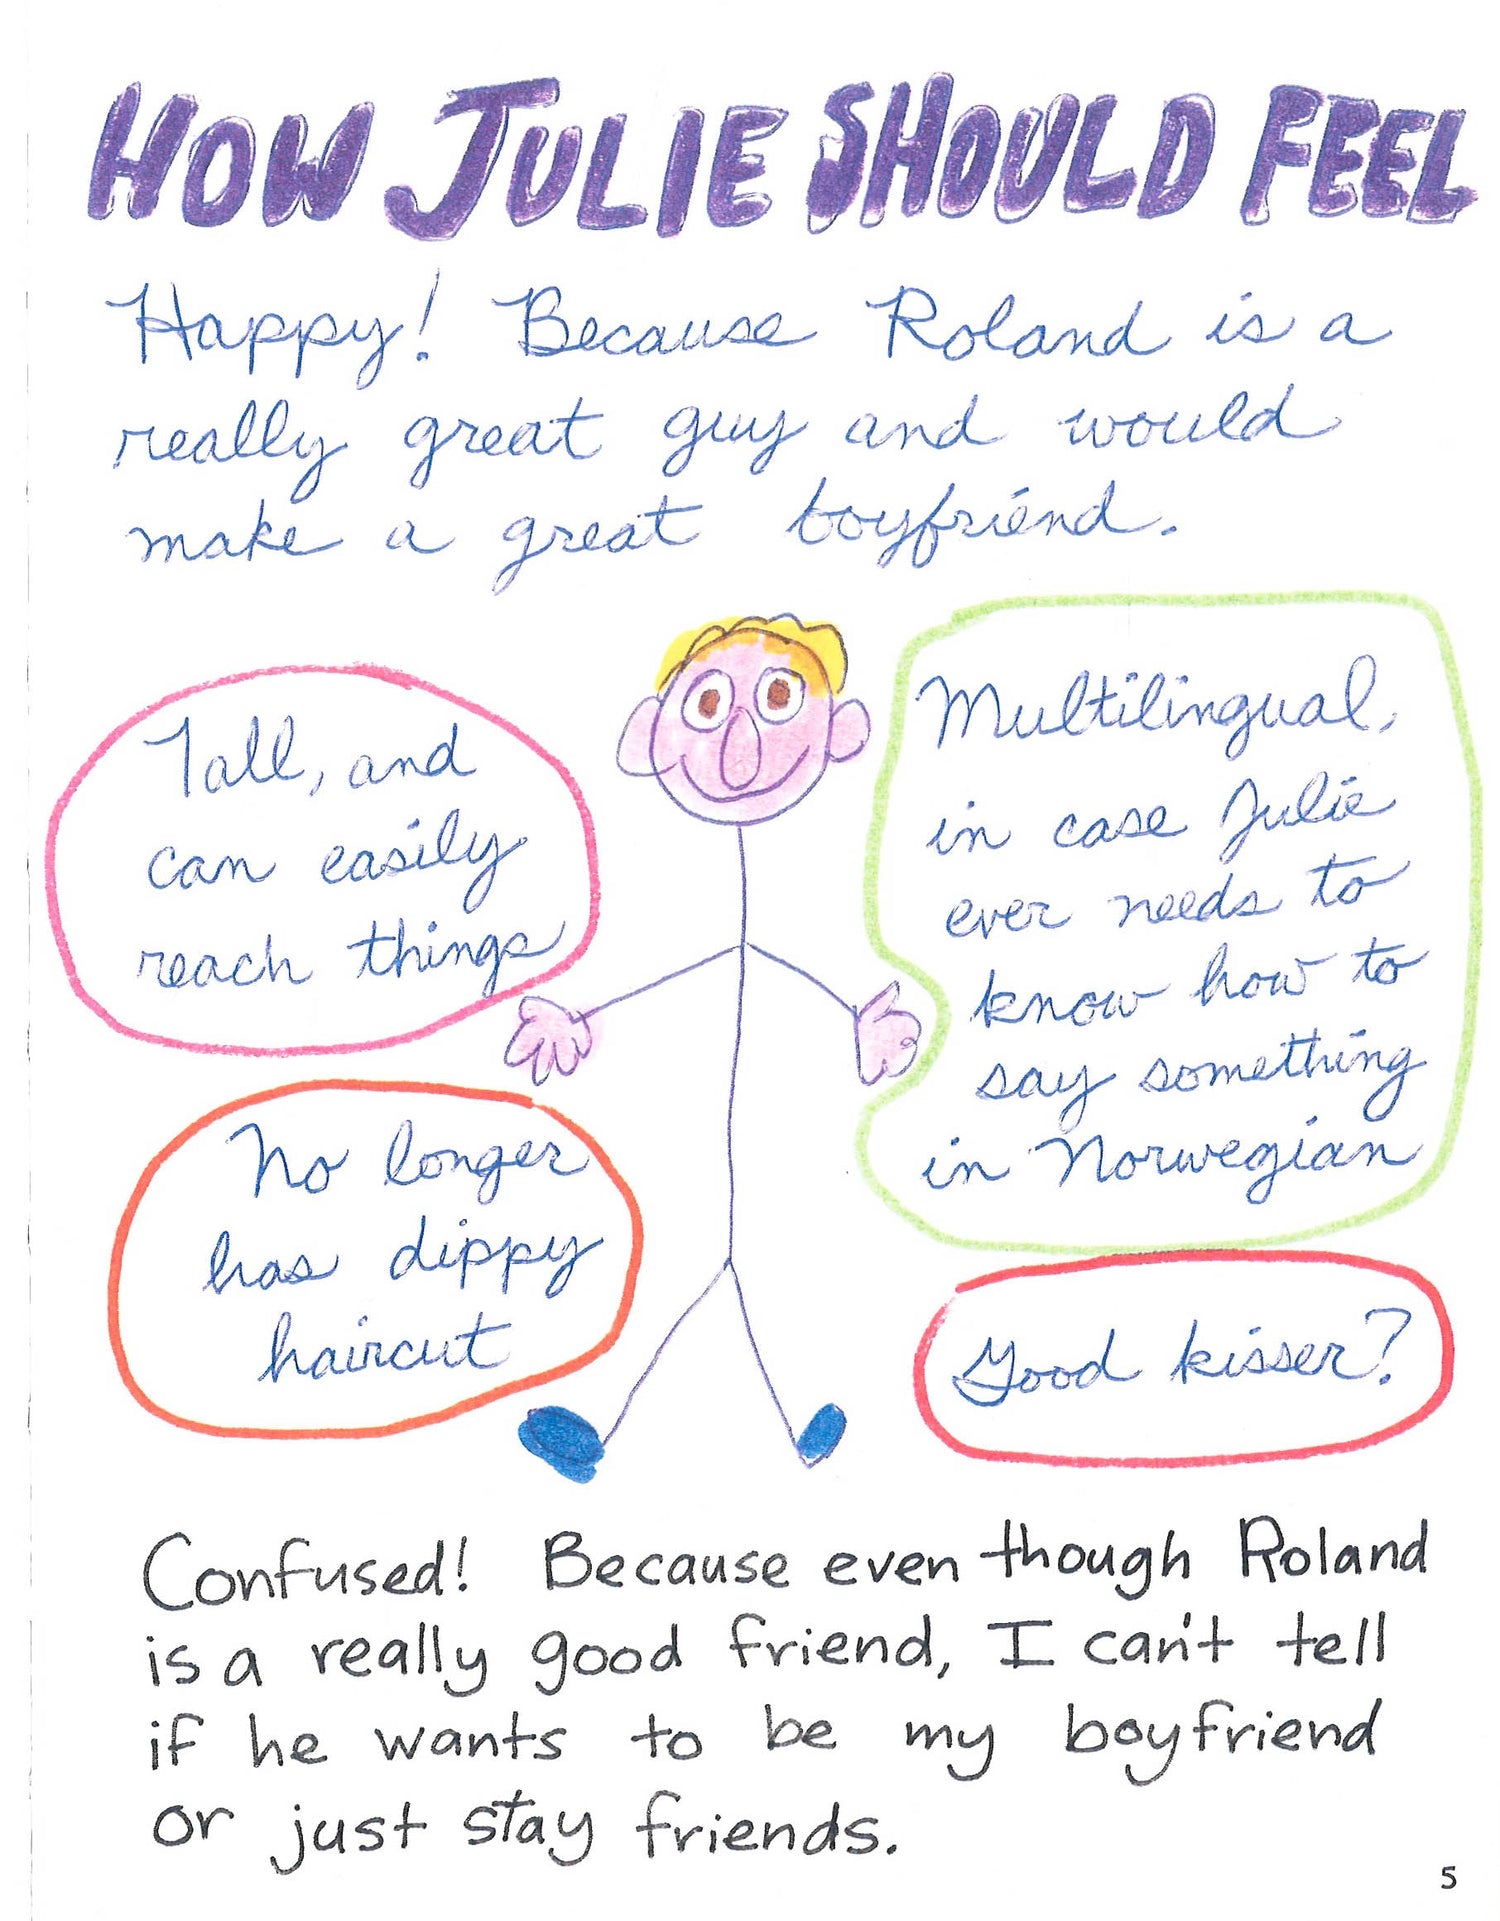 HOW JULIE SHOULD FEEL
Happy! Because Roland is a
really great guy and would
make a great boyfriend.
Tall, and
can easily
reach things
Multilingual,
in case Julie
ever needs to
know how to
say something
in Norwegian
No longer
has dippy
haircut
Good kisser?
Confused! Because even though Roland
is a really good friend, I can't tell
if he wants to be my boyfriend
or just stay friends.
5